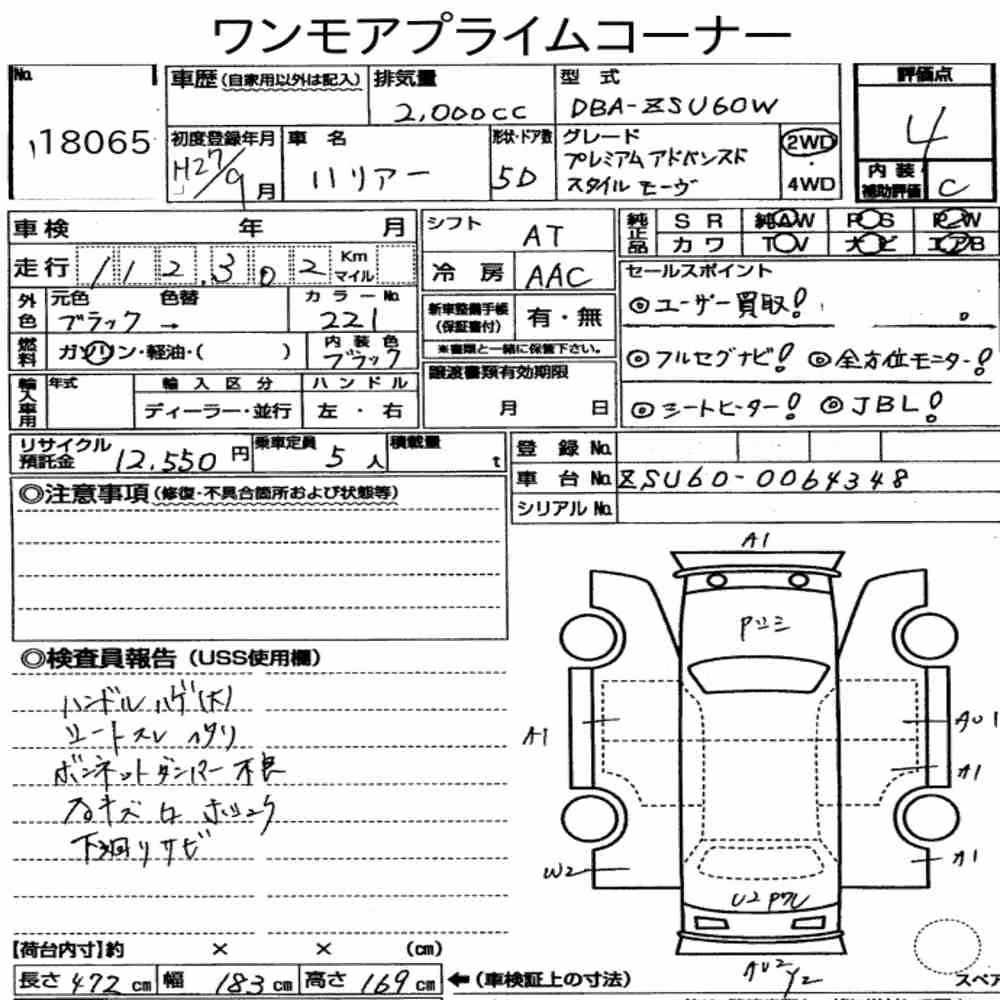 ワンモアプライムコーナー
No. 18065
車歴(自家用以外は記入)
排気量 2,000cc
型式 DBA-ZSU60W
評価点 4
初度登録年月 H27/9月
車名 ハリアー
形状・ドア数 5D
グレード プレミアム アドバンスド
スタイル モーヴ
2WD
4WD
内装補助評価 C
車検 年 月
シフト AT
純正品 SR 純AW PS PW
カワ TV ナビ エアB
走行 112,302 Km マイル
冷房 AAC
セールスポイント
◎ユーザー買取!
外色 元色 色替 カラーNo.
ブラック → 221
新車整備手帳(保証書付) 有・無
※書類と一緒に保管下さい。
燃料 ガソリン・軽油・( )
内装色 ブラック
◎フルセグナビ! ◎全方位モニター!
輸入車用 年式 輸入区分 ハンドル
ディーラー・並行 左・右
譲渡書類有効期限
月 日
◎シートヒーター! ◎JBL!
リサイクル預託金 12,550円
乗車定員 5人
積載量 t
登録No.
車台No. ZSU60-0064348
シリアルNo.
◎注意事項(修復・不具合箇所および状態等)
◎検査員報告(USS使用欄)
ハンドルハゲ(大)
シートスレ ヘタリ
ボンネットダンパー不良
下廻りサビ
A1
Pツミ
A1
AU1
A1
W2
A1
U2
AU2 Y2
【荷台内寸】約 × × (cm)
長さ 472 cm 幅 183 cm 高さ 169 cm ←(車検証上の寸法)
スペア